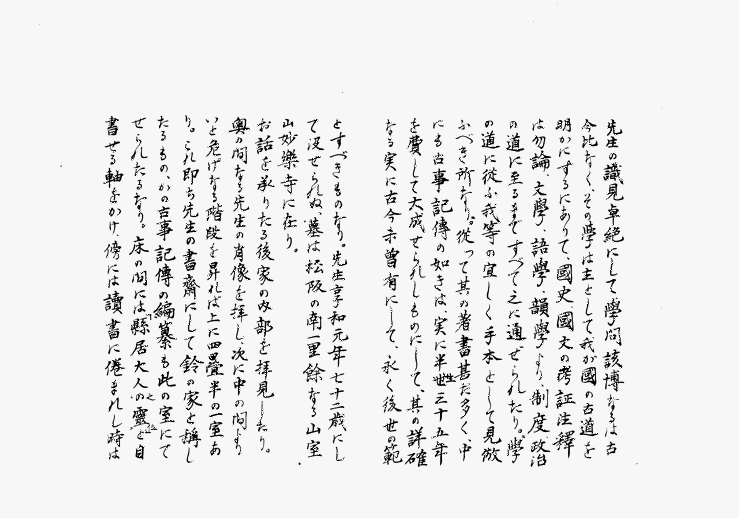 先生の識見卓絶にして學問該博なるは古
今比なく、その學は主として我が國の古道を
明かにするにありて、國史、國文の考証注釋
は勿論、文學、語學、韻學より、制度政治
の道に至るまですべて之に通ぜられたり。學
の道に從ふ我等の宜しく手本として見倣
ふべき所なり。從って其の著書甚だ多く、中
にも古事記傳の如きは、実に半世生三十五年
を費して大成せられしものにして、其の詳確
なる実に古今未曽有にして、永く後世の範
とすべきものなり。先生享和元年七十二歳にし
て沒せられぬ、墓は松阪の南一里餘なる山室
山妙樂寺に在り。
お話を承りたる後家の内部を拝見したり。
奥の間なる先生の肖像を拝し、次に中の間より
いと危げなる階段を昇れば上に四疊半の一室あ
り。これ即ち先生の書齋にして鈴の家と稱し
たるもの、かの古事記傳の編纂も此の室にて
せられたるなり。床の間には「縣居大人の之靈位」と自
書せる軸をかけ、傍には讀書に倦まれし時は